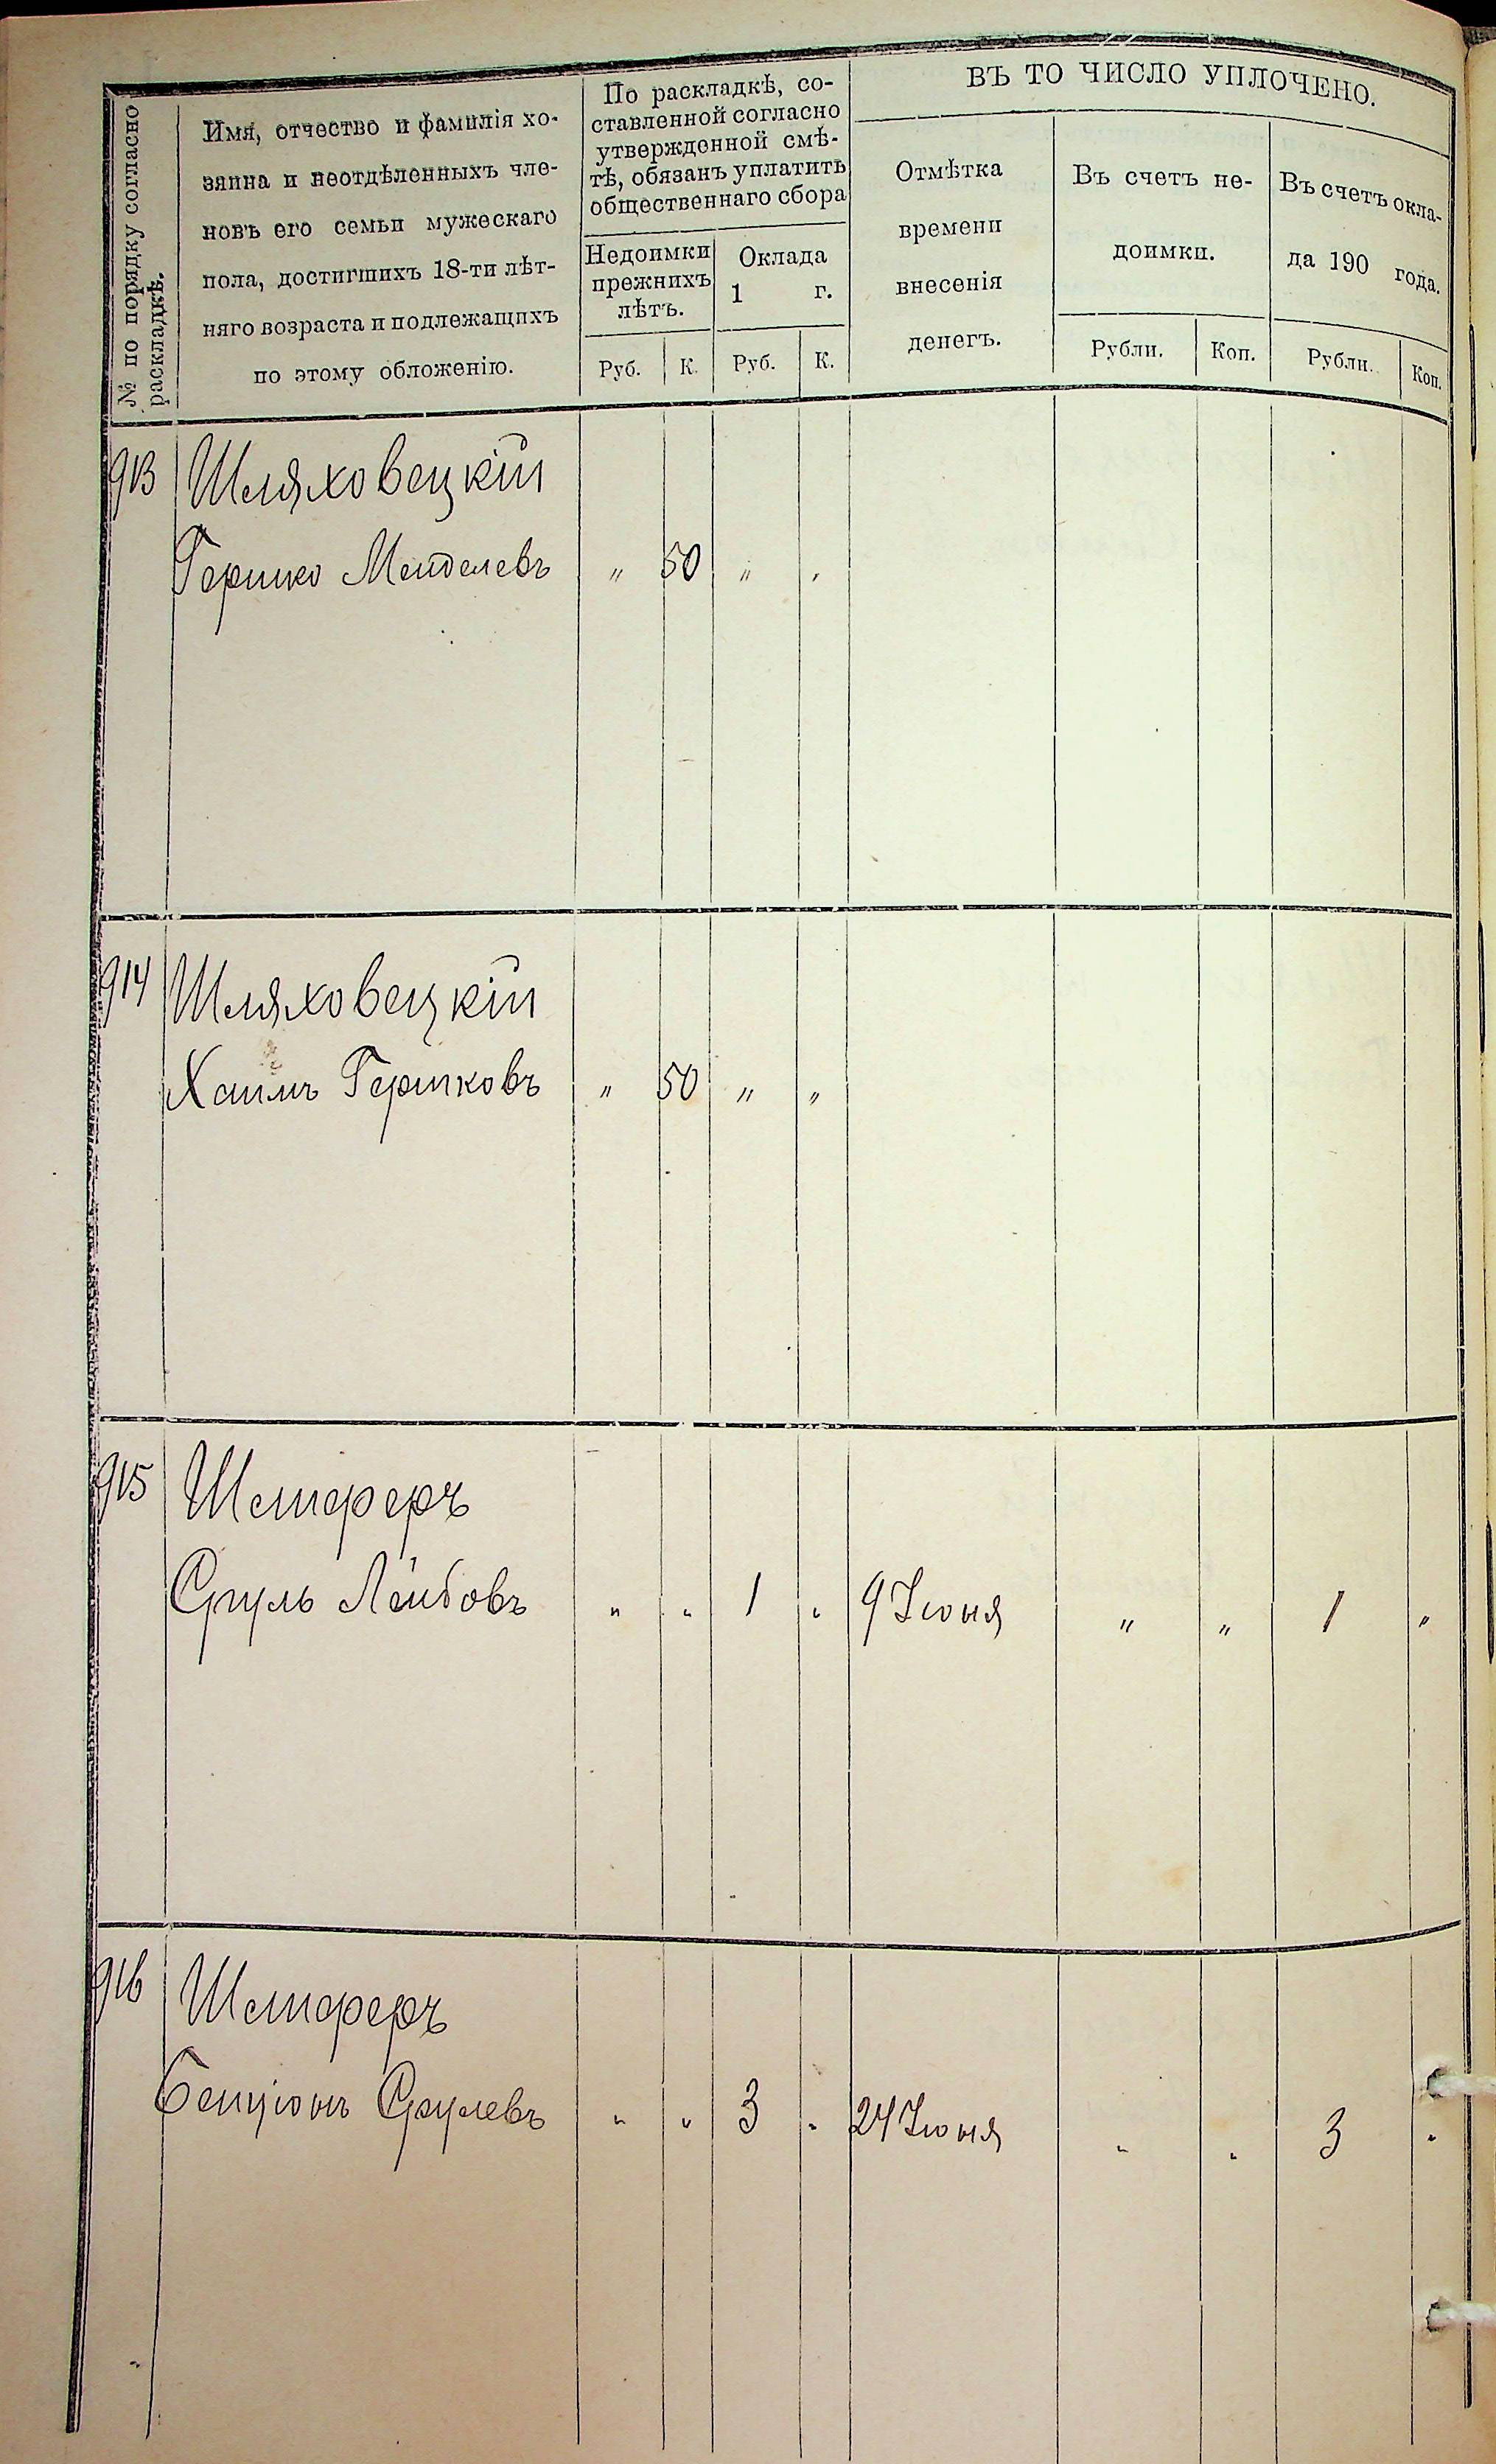 № по порядку согласно
раскладкѣ.
Имя, отчество и фамилія хо-
зяина и неотдѣленныхъ чле-
новъ его семьи мужескаго
пола, достигшихъ 18-ти лѣт-
няго возраста и подлежащихъ
по этому обложенію.
По раскладкѣ, со-
ставленной согласно
утвержденной смѣ-
тѣ, обязанъ уплатить
общественнаго сбора
Недоимки
прежнихъ
лѣтъ.
Оклада
1 г.
Руб. К. Руб. К.
ВЪ ТО ЧИСЛО УПЛОЧЕНО.
Отмѣтка
времени
внесенія
денегъ.
Въ счетъ не-
доимки.
Рубли. Коп.
Въ счетъ окла-
да 190 года.
Рубли. Коп.
913 Шляховецкій
Гершко Менделевъ " 50 " "
914 Шляховецкій
Хаимъ Гершковъ " 50 " "
915
Сруль Лейбовъ " " 1 " 9 Іюня " " 1 "
916
Бенціонъ Срулевъ " " 3 " 24 Іюня " " 3 "